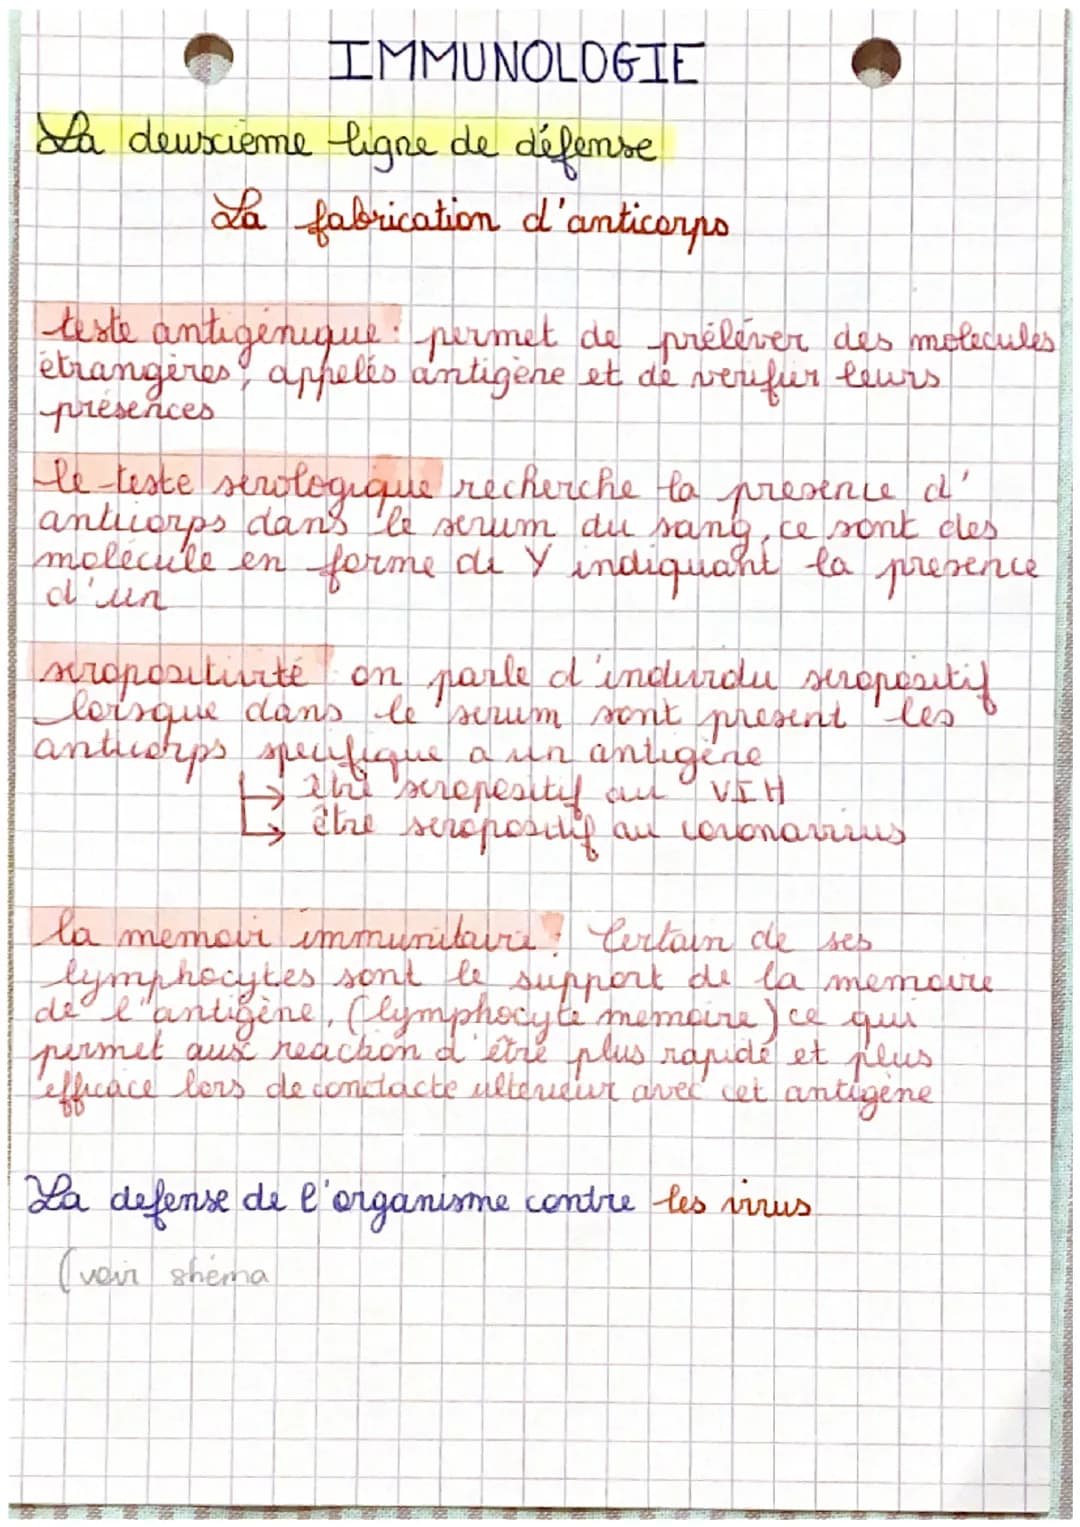 IMMUNOLOGIE
La deuxième ligne de défense
La fabrication d'anticorps
teste antigénique : permet de prélever des molécules
étrangères, appelés antigène et de verifier leurs
présences
le teste serologique recherche la presence d'
anticorps dans le serum du sang, ce sont des
molécule en forme de Y indiquant la presence
d'un
seropositivité on parle d'individu seropositif
lorsque dans le serum sont present les
anticorps specifique a un antigène
↳ être seropositif au VIH
↳ être seropositif au coronavirus
la memoir immunitaire : Certain de ses
lymphocytes sont le support de la memoire
de l'antigène, (lymphocyte memoire) ce qui
permet aux reaction d'être plus rapide et plus
efficace lors de contacte ulterieur avec cet antigène
La defense de l'organisme contre les virus
(voir shéma